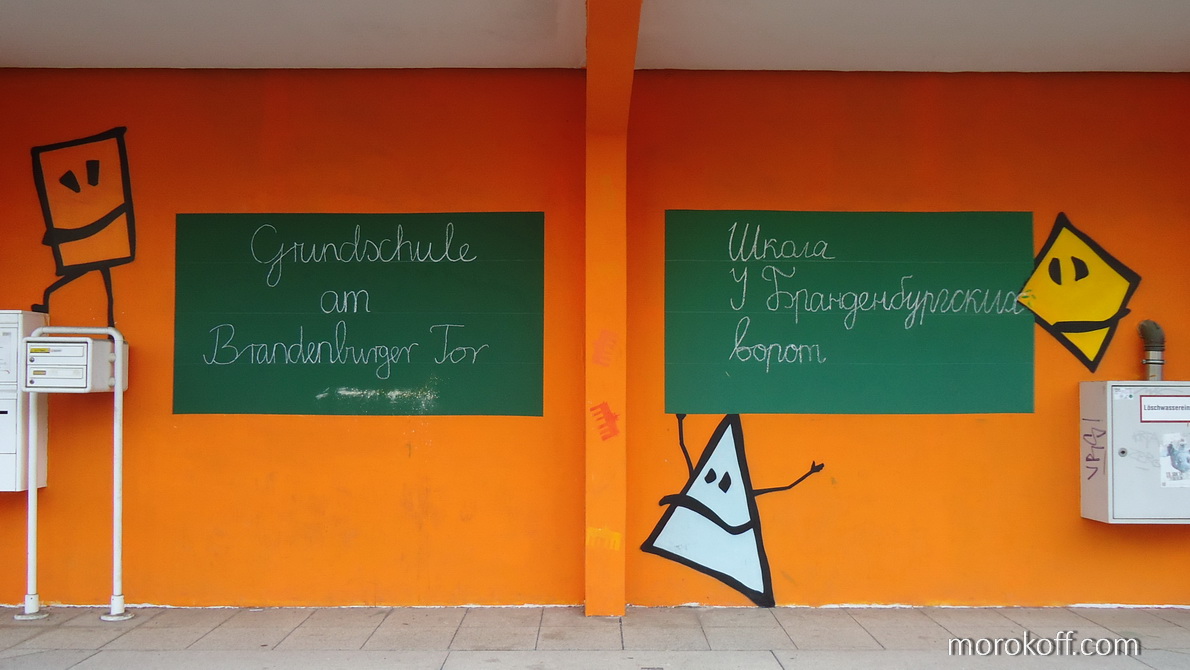 Grundschule
am
Brandenburger Tor
Школа
У Бранденбургских
ворот
Löschwasserein
morokoff.com